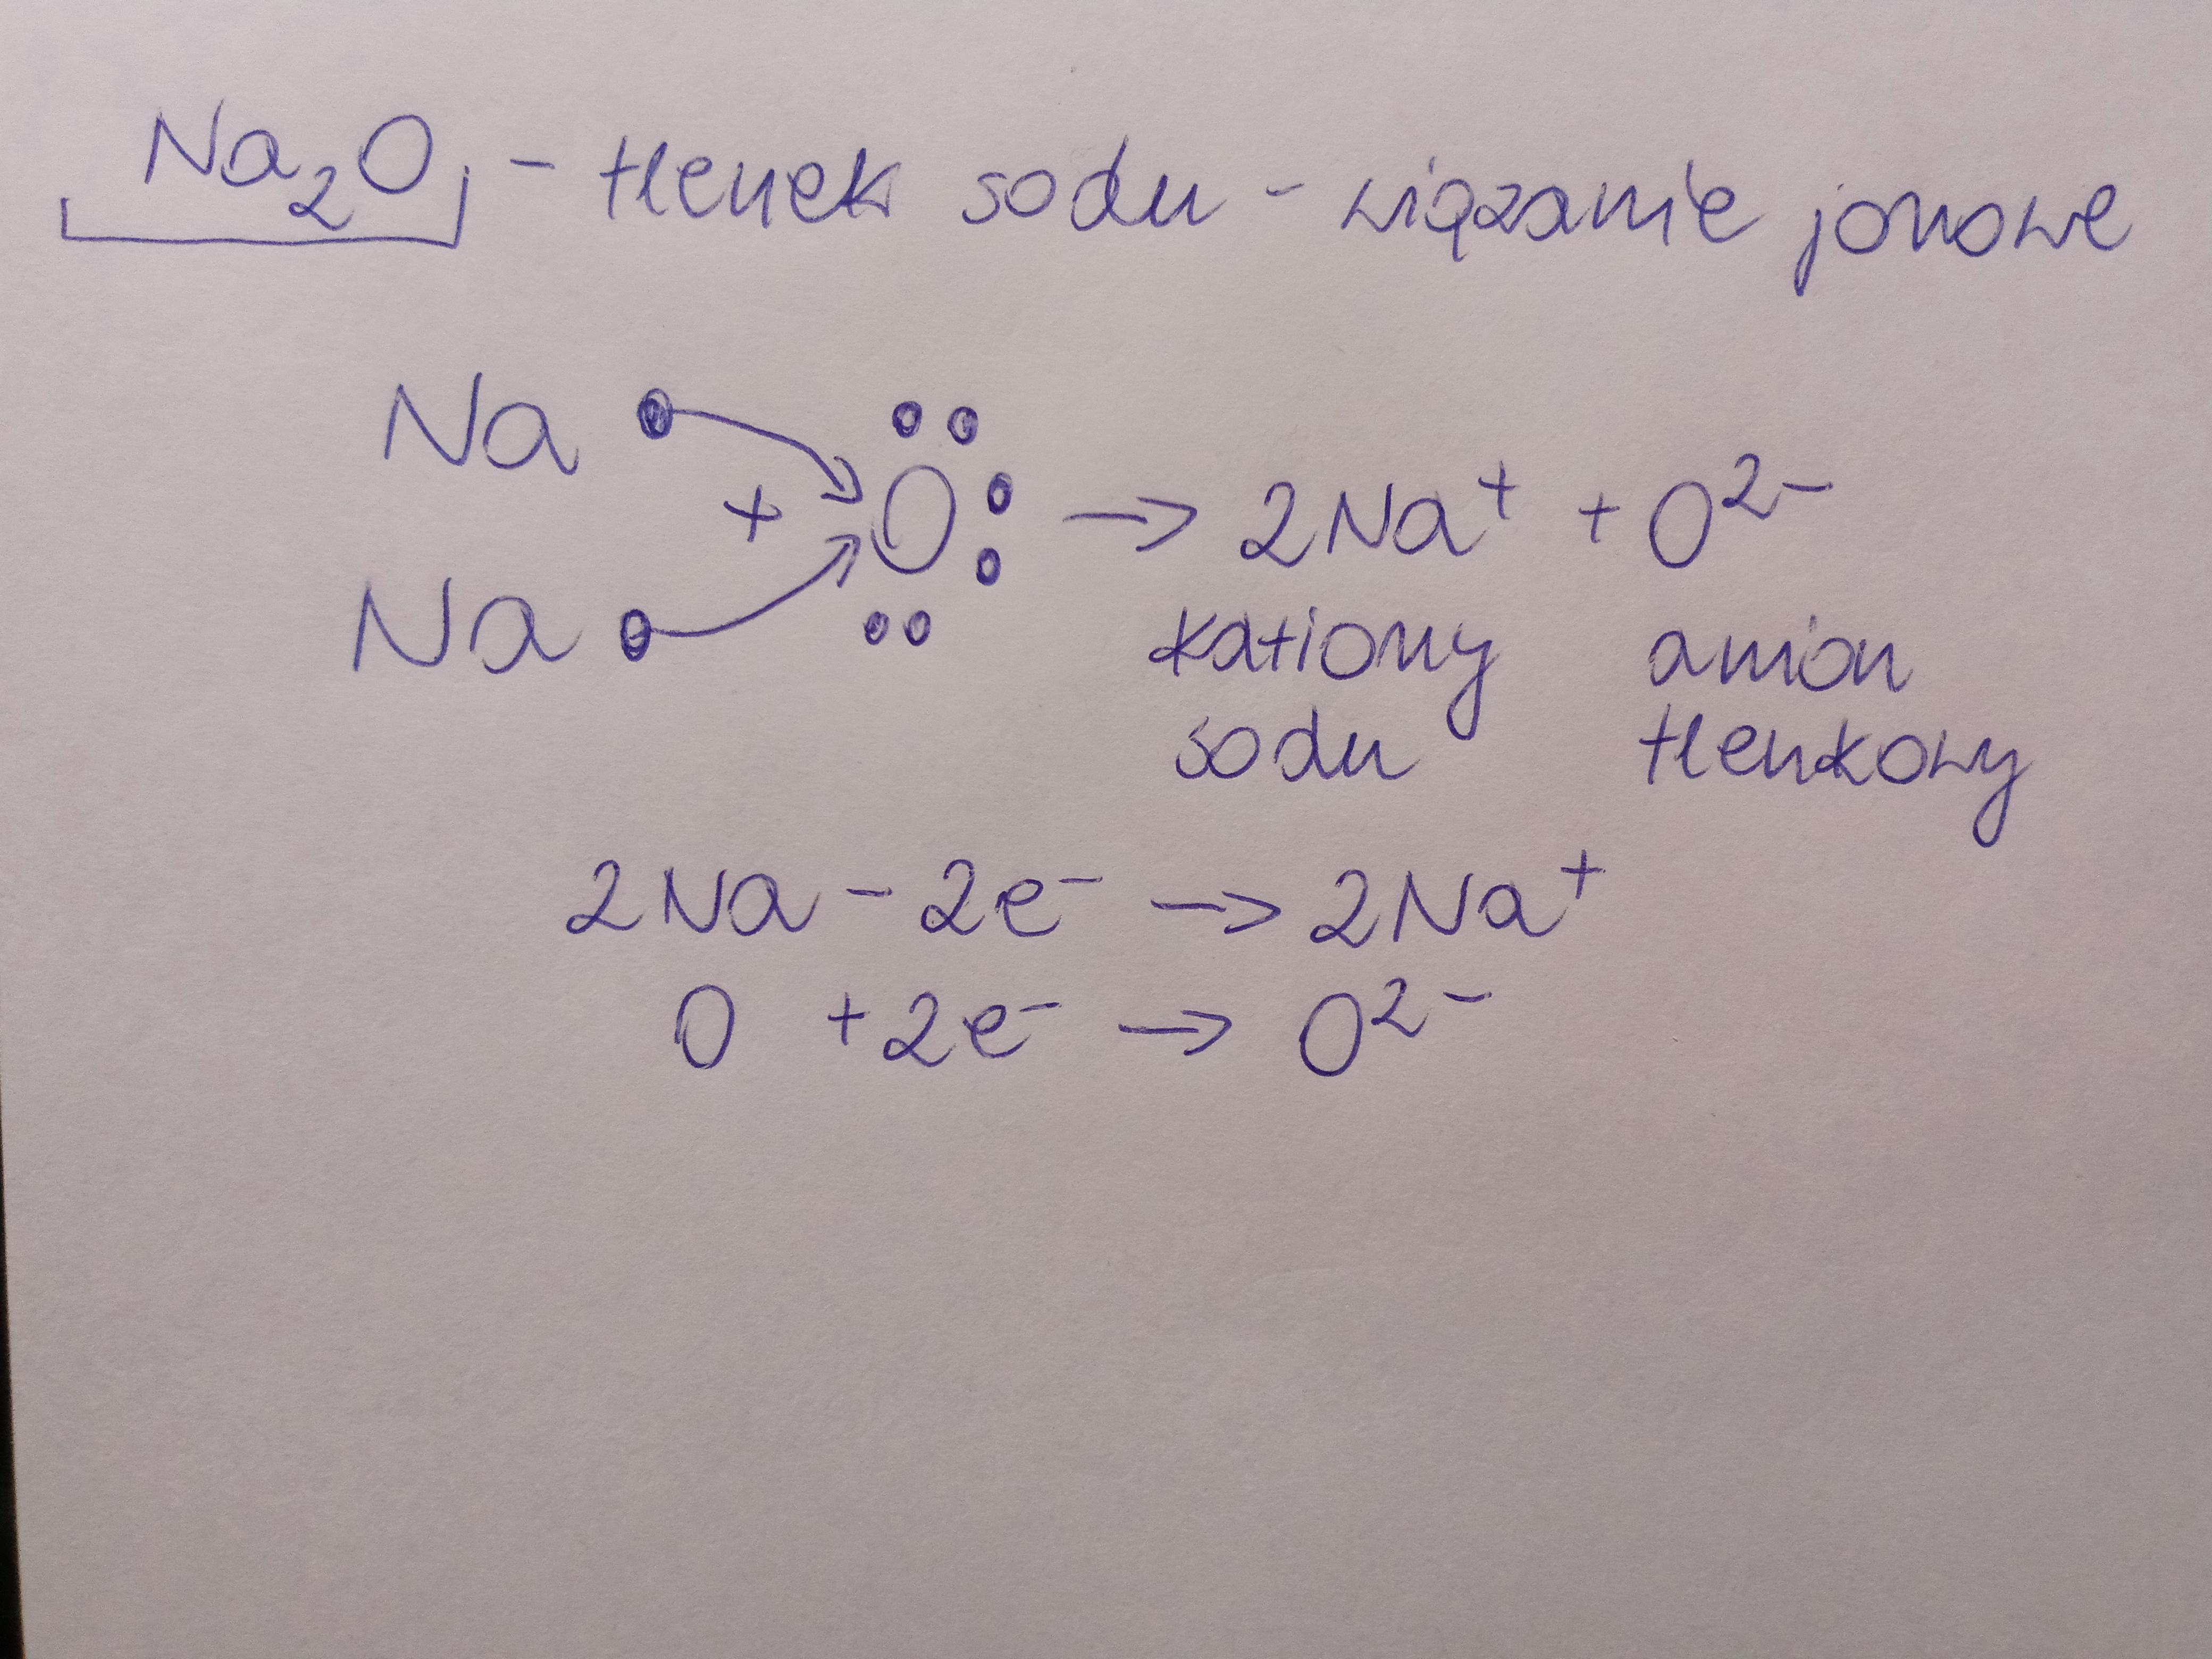 Na₂O - tlenek sodu - wiązanie jonowe
Na
+ O → 2Na⁺ + O²⁻
Na
kationy anion
sodu tlenkowy
2Na - 2e⁻ → 2Na⁺
O + 2e⁻ → O²⁻